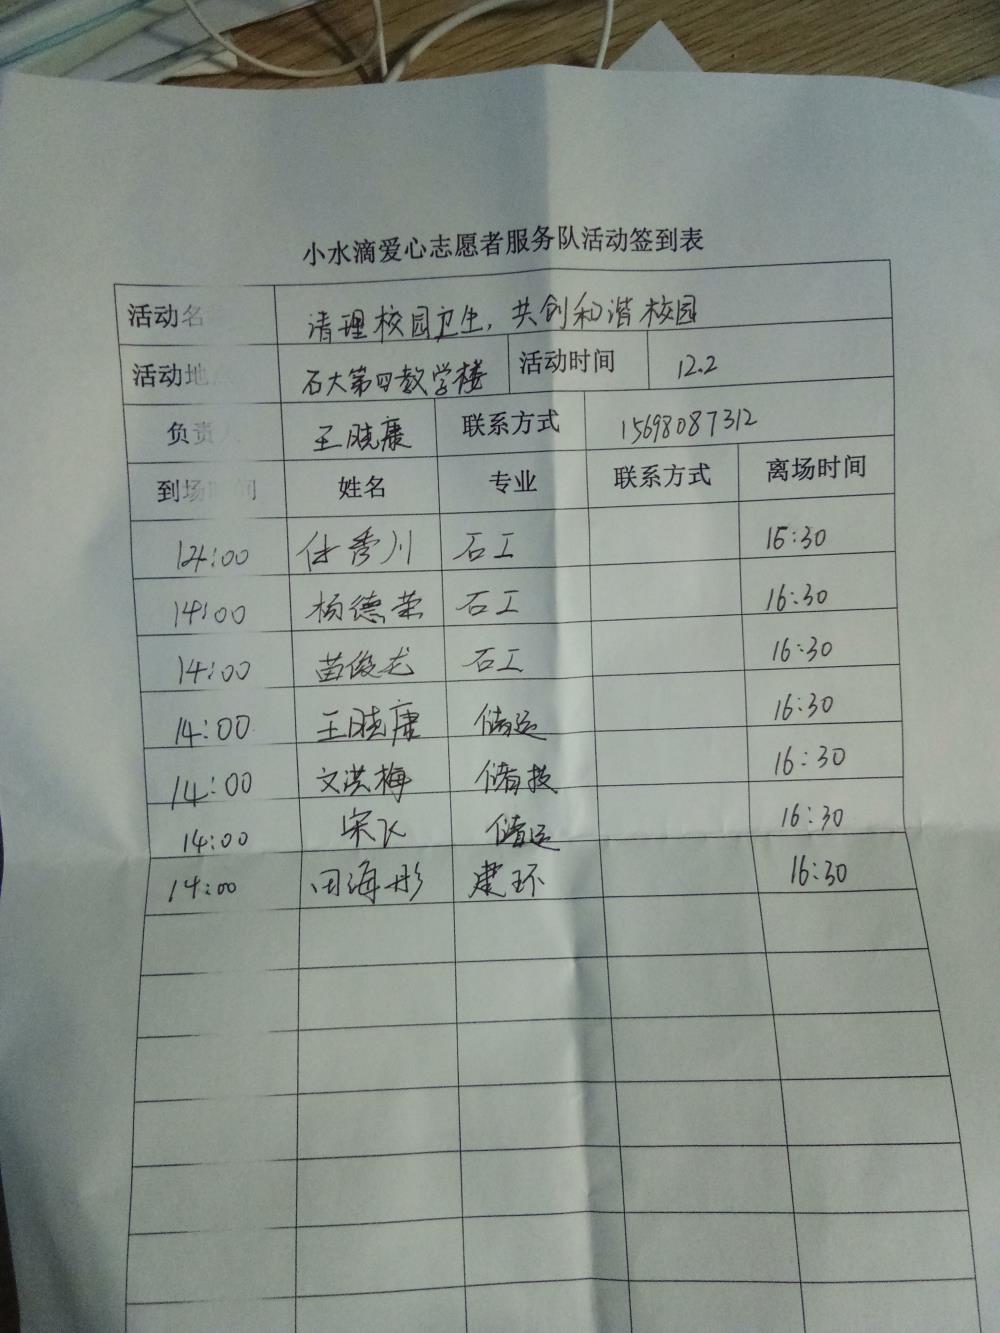 小水滴爱心志愿者服务队活动签到表
活动名 清理校园卫生,共创和谐校园
活动地点 石大第四教学楼 活动时间 12.2
负责人 王晓康 联系方式 15698087312
到场时间 姓名 专业 联系方式 离场时间
14:00 任秀川 石工 16:30
14:00 杨德荣 石工 16:30
14:00 苗俊龙 石工 16:30
14:00 王晓康 储运 16:30
14:00 文洪梅 储技 16:30
14:00 宋飞 储运 16:30
14:00 田海彤 建环 16:30